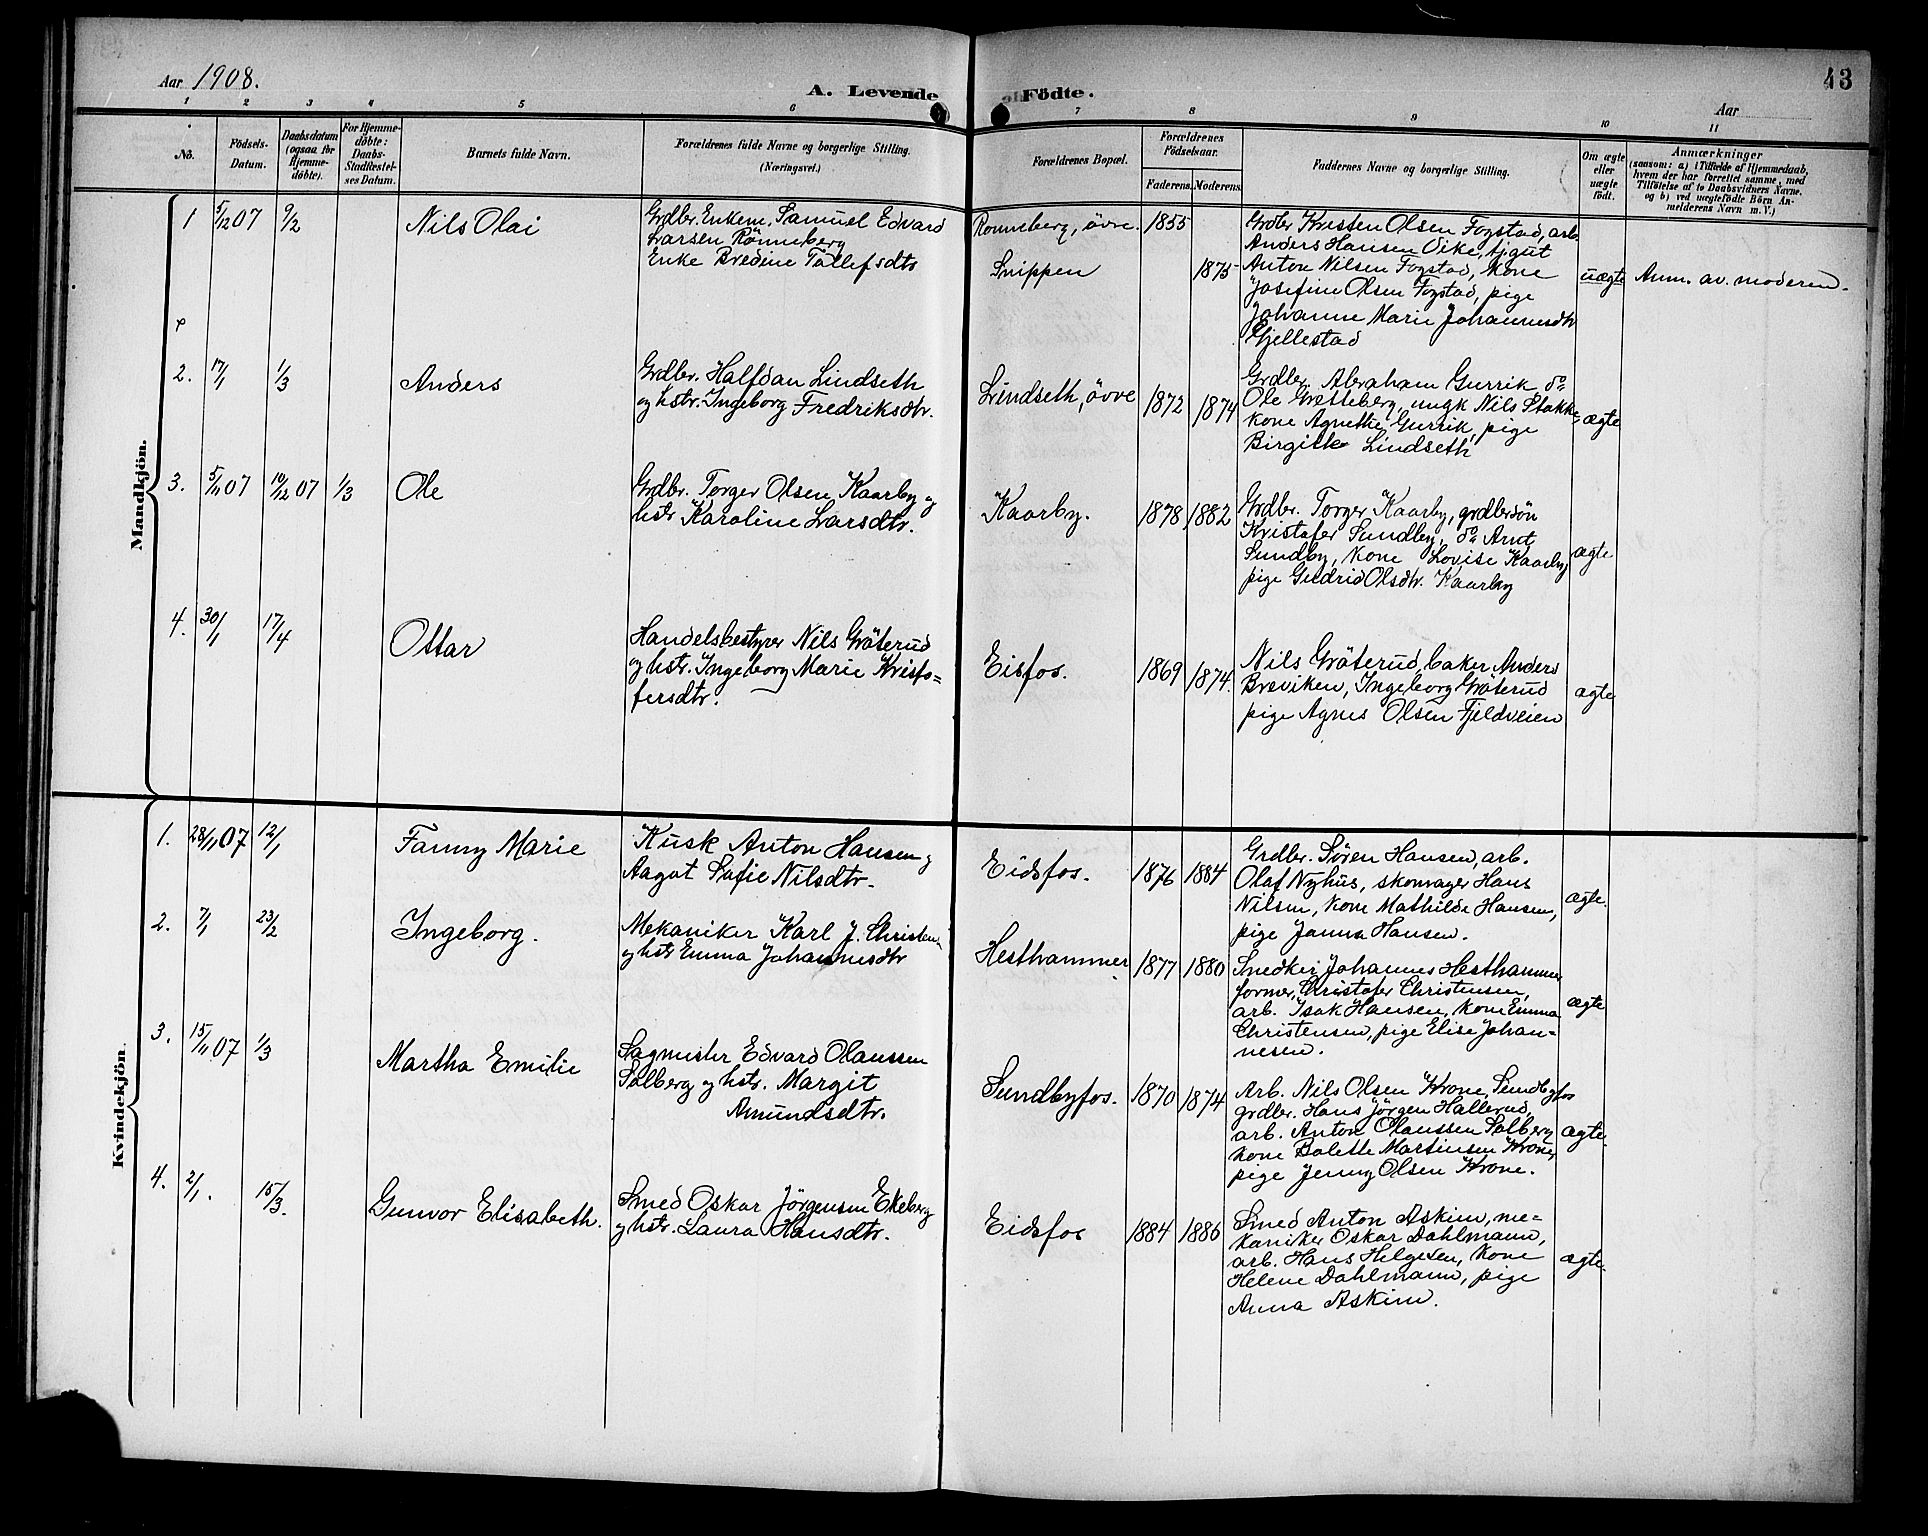 Aar 1908.
A. Levende
Födte.
Aar
43
1 2 3 4 5 6 7 8 9 10 11
No.
Födsels-
Datum.
Daabsdatum
(ogsaa for
Hjemme-
döbte).
For Hjemme-
döbte:
Daabs-
Stadfæstel-
ses Datum.
Barnets fulde Navn.
Forældrenes fulde Navne og borgerlige Stilling.
(Næringsvei.)
Forældrenes Bopæl.
Forældrenes
Födselsaar.
Faderens. Moderens.
Faddernes Navne og borgerlige Stilling.
Om ægte
eller
uægte
födt.
Anmærkninger
(saasom: a) i Tilfælde af Hjemmedaab,
hvem der har forrettet samme, med
Tilföielse af to Daabsvidners Navne,
og b) ved uægtefödte Börn An-
melderens Navn m. V.)
Mandkjön.
1 5/12 07 9/2 Nils Olai
Grdbr. Enkem. Samuel Edvard
Larsen Rönneberg
Enke Bredine Tollefsdtr
Ronneberg, övre. 1855
Snippen 1875
Grdbr Kristen Olsen Fogstad, arb.
Anders Hansen Vike, tjgut
Anton Nilsen Fogstad, Kone
Josefine Olsen Fogstad, pige
Johanne Marie Johannesdtr
Gjellestad
uægte
Anm. av moderen.
2. 17/1 1/3 Anders
Grdbr. Halfdan Lindseth
og hstr. Ingeborg Fredriksdtr.
Lindseth, övre 1872 1874
Grdbr. Abraham Gurrik do
Ole Grætteberg, ungk Nils Stokke,
kone Agnethe Gurrik, pige
Birgitte Lindseth
ægte
3. 5/11 07 10/12 07 1/3 Ole
Grdbr. Torger Olsen Kaarby og
hstr Karoline Larsdtr.
Kaarby. 1878 1882
Grdbr. Torger Kaarby, grdbrsön
Kristofer Sundby, do Arnt
Sundby, Kone Lovise Kaarby,
pige Gudrid Olsdtr. Kaarby
ægte
4. 30/1 17/4 Ottar
Handelsbestyrer Nils Gröterud
og hstr. Ingeborg Marie Kristo=
fersdtr.
Eisfos. 1869 1874.
Nils Gröterud, baker Anders
Breviken, Ingeborg Gröterud
pige Agnes Olsen Fjeldveien
ægte
Kvindekjön
1. 28/11 07 12/1 Fanny Marie
Kusk Anton Hansen og
Aagot Sofie Nilsdtr.
Eidsfos. 1876 1884
Grdbr. Sören Hansen, arb.
Olaf Nyhus, skomager Hans
Nilsen, Kone Mathilde Hansen,
pige Janna Hansen.
ægte.
2. 7/1 23/2 Ingeborg.
Mekaniker Karl J. Christen-
og hstr Emma Johannesdtr
Hesthammer 1877 1880
Smedker Johannes Hesthammer
former Christofer Christensen,
arb. Isak Hansen, Kone Emma
Christensen, pige Elise Johan=
nesen.
ægte
3. 15/11 07 1/3 Martha Emilie
Sagmester Edvard Olaussen
Solberg og hstr. Margit
Amundsdtr.
Sundbyfos. 1870 1874
Arb. Nils Olsen Krone, Sundbyfos
grdbr. Hans Jörgen Hallerud,
arb. Anton Olaussen Solberg
kone Bolette Martinsen Krone,
pige Jenny Olsen Krone.
ægte.
4. 2/1. 15/3. Gunvor Elisabeth.
Smed Oskar Jörgensen Ekeberg
og hstr. Laura Hansdtr.
Eidsfos 1884 1886
Smed Anton Askim, me=
kaniker Oskar Dahlmann,
arb. Hans Helgesen, Kone
Helene Dahlmann, pige
Anna Askim.
ægte.